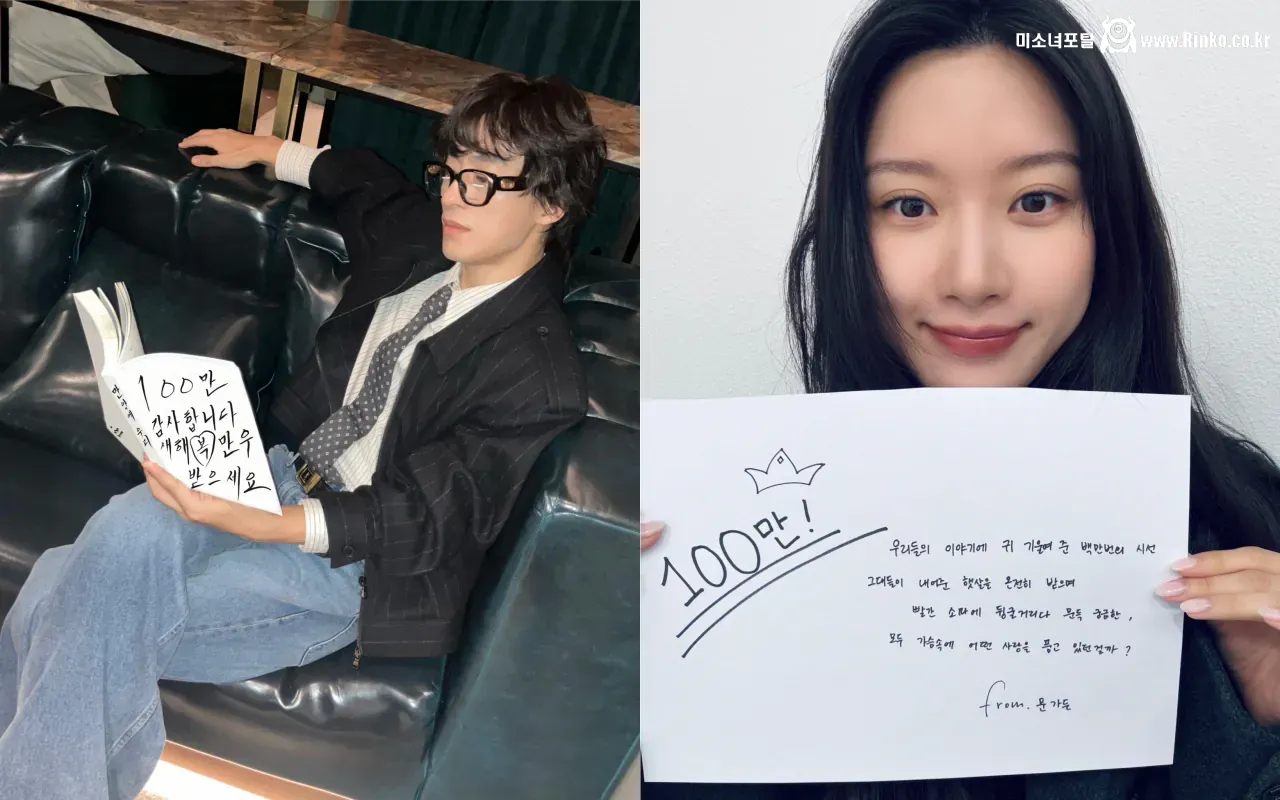 만약에 우리
100만
감사합니다
새해 복 만우
받으세요
미소녀포탈 www.Rinko.co.kr
100만!
우리들의 이야기에 귀 기울여 준 백만번의 시선
그대들이 내어준 햇살을 온전히 받으며
빨간 소파에 뒹굴거리다 문득 궁금한,
모두 가슴속에 어떤 사랑을 품고 있던걸까?
from. 문가든